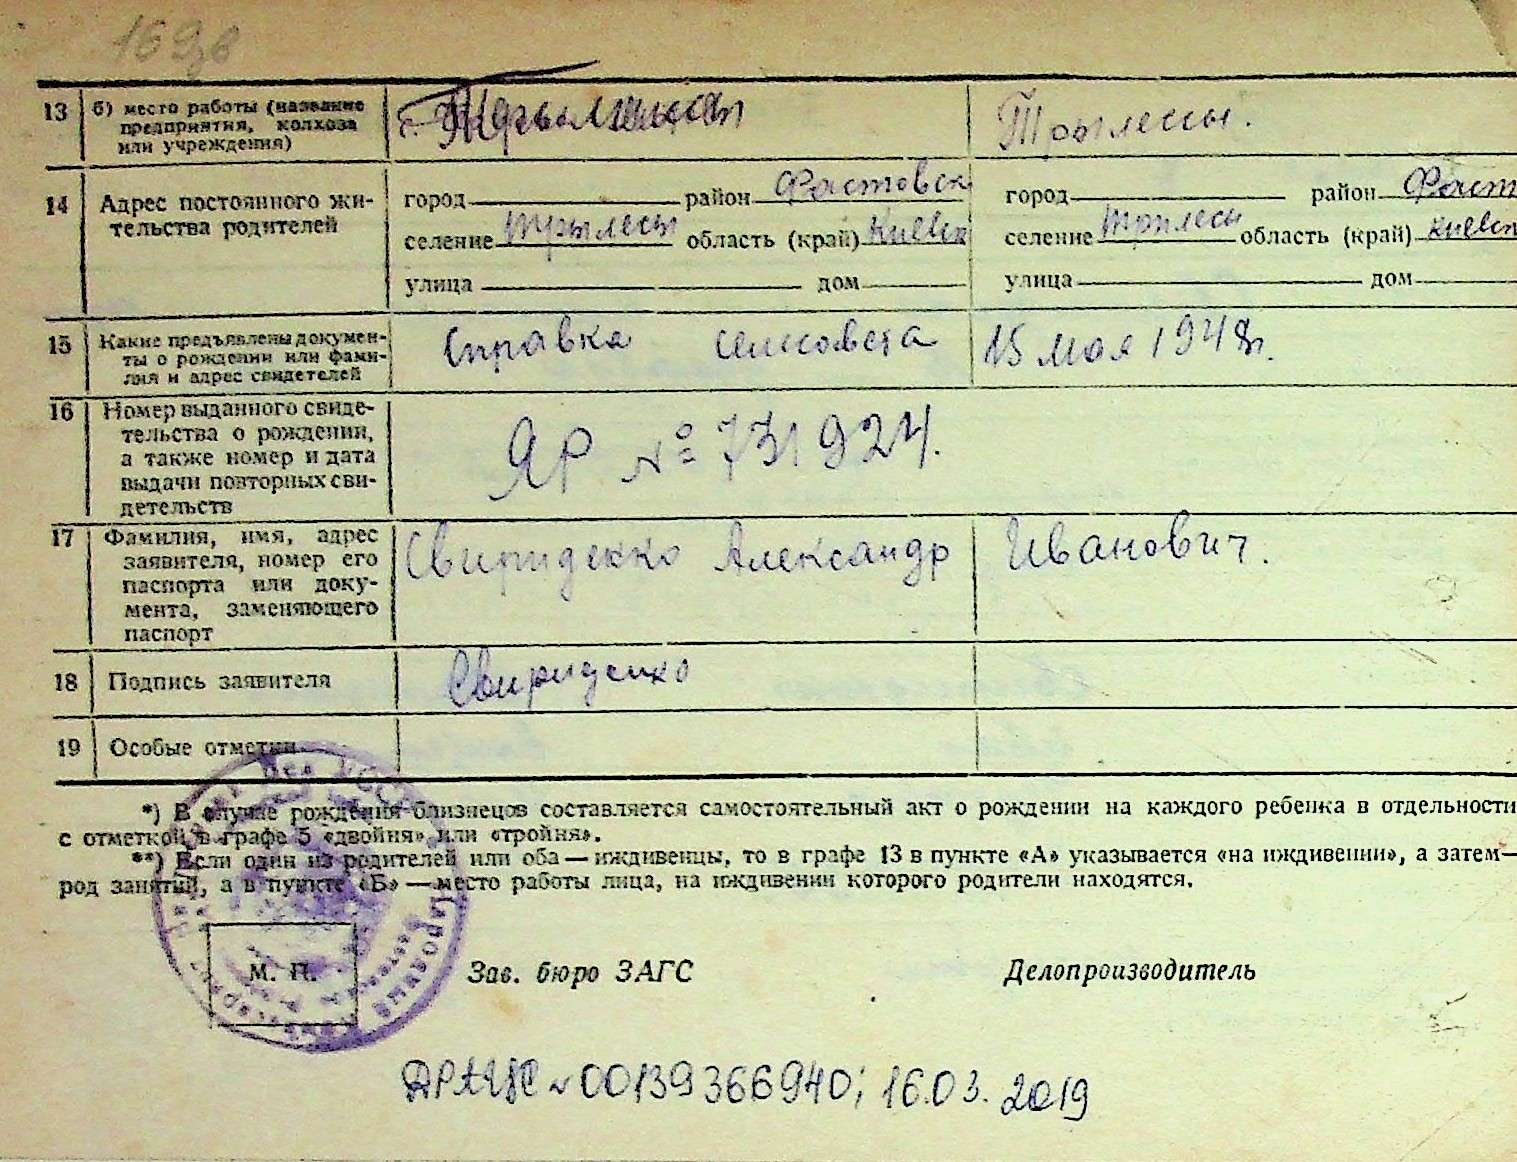 169зв
13 б) место работы (название
предприятия, колхоза
или учреждения)
Трылессы.
14 Адрес постоянного жи-
тельства родителей
город район Фастовск город район Фаст
селение Трылесы область (край) Киевск селение Трылесы область (край) Киевск
улица дом улица дом
15 Какие предъявлены докумен-
ты о рождении или фами-
лия и адрес свидетелей
Справка сельсовета 15 мая 1948 г.
16 Номер выданного свиде-
тельства о рождении,
а также номер и дата
выдачи повторных сви-
детельств
ЯР № 731924.
17 Фамилия, имя, адрес
заявителя, номер его
паспорта или доку-
мента, заменяющего
паспорт
Свириденко Александр Иванович.
18 Подпись заявителя
Свириденко
19 Особые отметки
*) В случае рождения близнецов составляется самостоятельный акт о рождении на каждого ребенка в отдельности
с отметкой в графе 5 «двойня» или «тройня».
**) Если один из родителей или оба — иждивенцы, то в графе 13 в пункте «А» указывается «на иждивении», а затем —
род занятий, а в пункте «Б» — место работы лица, на иждивении которого родители находятся.
М. П. Зав. бюро ЗАГС Делопроизводитель
ДРАЦС № 00139366940; 16.03.2019